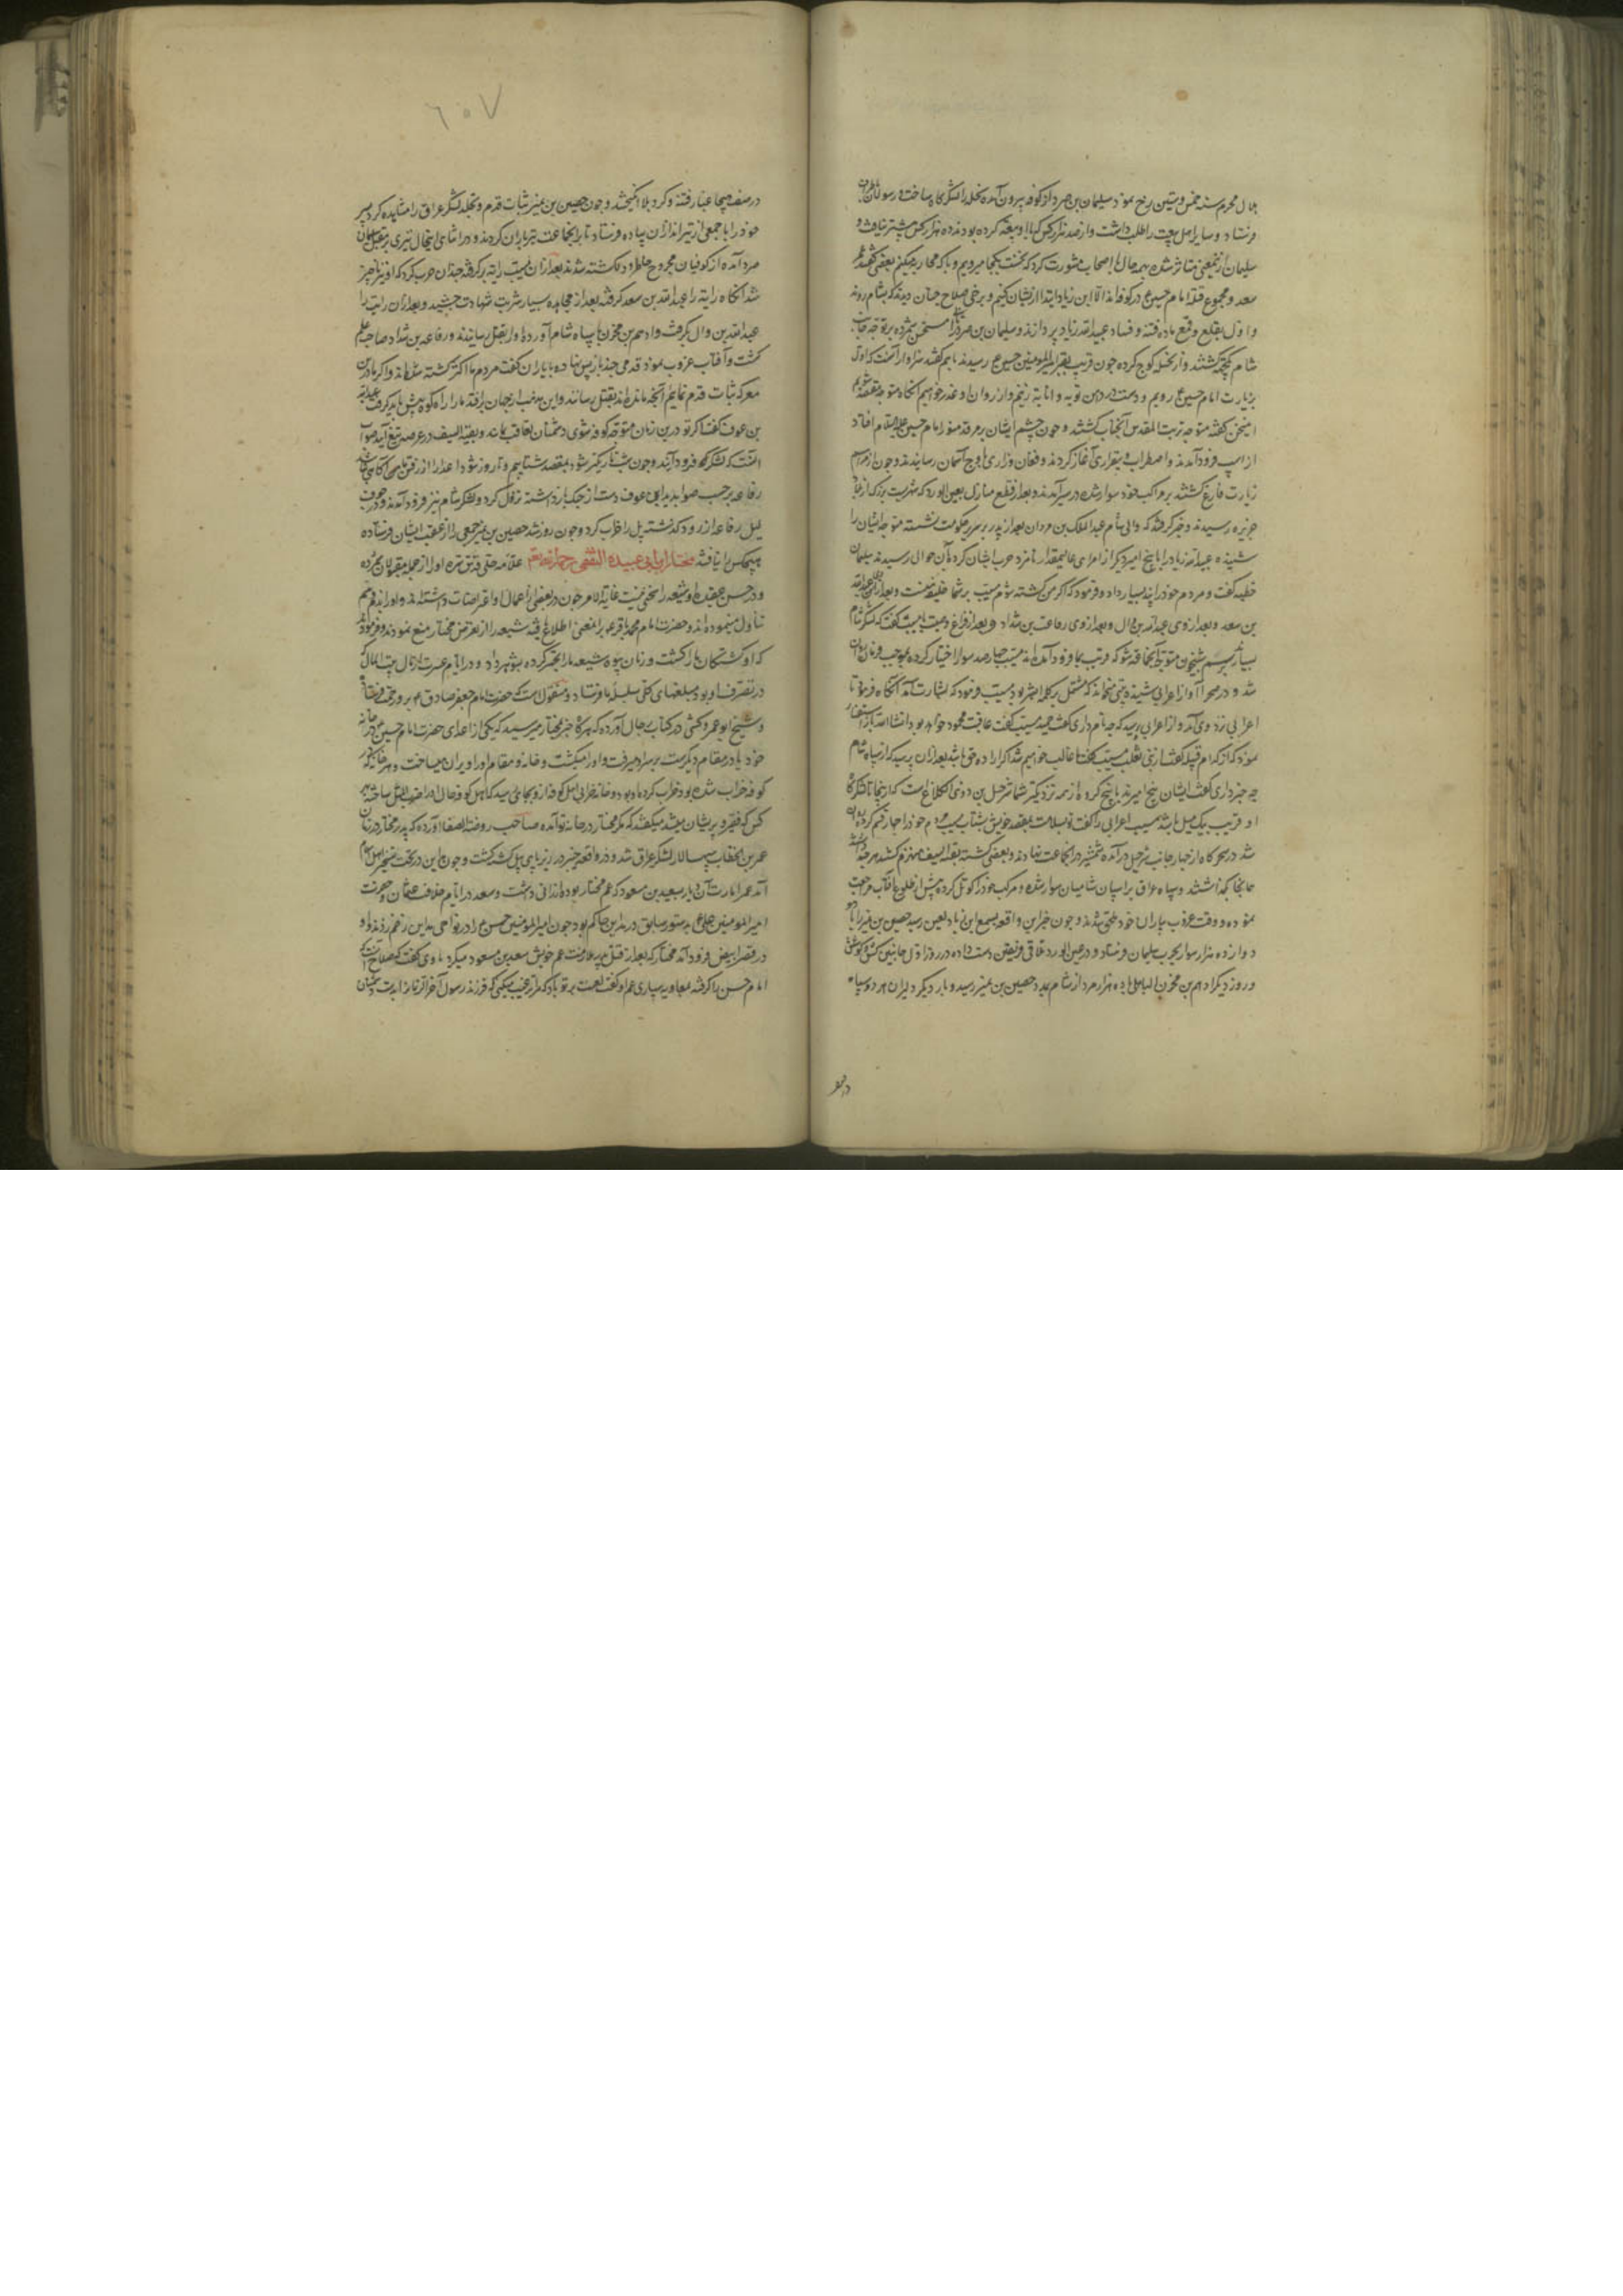 هلال محرم سنه خمس وستین رخ نمود سلیمان بن صرد از کوفه بیرون آمده نخیله را لشکرگاه ساخت و رسولان
فرستاد و سایر اهل بیعت را طلب داشت و از صد هزار کس که با او بیعت کرده بودند ده هزار کس بیشتر نیافت و
سلیمان از این معنی متاثر شده بهر حال با اصحاب مشورت کرد که نخست بکجا میرویم و با که محاربه میکنیم بعضی گفتند عمر
سعد و مجموع قتله امام حسین ع در کوفه‌اند الا ابن زیاد ابتدا از ایشان کنیم و برخی صلاح چنان دیدند که بشام روند
و اول بقلع و قمع ماده فتنه و فساد عبیدالله زیاد پردازند و سلیمان بن صرد این سخن را مستحسن شمرده بر توجه جانب
شام یکجهت گشتند و از نخیله کوچ کرده چون قریب بقبر امیرالمؤمنین حسین ع رسیدند با هم گفتند سزاوار آنست که اول
بزیارت امام حسین ع رویم و دست در دامن توبه و انابه زنیم و از روان او عذر خواهیم آنگاه متوجه مقصد شویم
این سخن گفته متوجه تربت المقدس آنجناب گشتند و چون چشم ایشان بر مرقد منور امام حسین علیه السلام افتاد
از اسپ فرود آمدند و اضطراب و بیقراری آغاز کردند و فغان و زاری باوج آسمان رسانیدند و چون از مراسم
زیارت فارغ گشتند بر مراکب خود سوار شده در سیر آمدند و بعد از قطع منازل بعین الورد که شهریست بزرگ از بلاد
جزیره رسیدند و خبر گرفتند که والی شام عبدالملک بن مروان بعد از پدر بر سریر حکومت نشسته متوجه ایشان را
شنیده عبیدالله زیاد را با پنج امیر دیگر از امرای عالیمقدار نامزد حرب ایشان کرده بآن حوالی رسیدند سلیمان
خطبه گفت و مردم خود را پند بسیار داد و فرمود که اگر من کشته شوم مسیب بر شما خلیفه منست و بعد از وی عبدالله
بن سعد و بعد از وی عبدالله بن وال و بعد از وی رفاعت بن شداد و بعد از فراغ وصیت با مسیب گفت که لشکر شام
شد و در صحرا آواز اعرابی شنیده بیتی میخواند که مشتمل بر کلمه ابشر بود مسیب فرمود که بشارت آمد آنگاه فرمود تا
اعرابی نزد وی آمد و از اعرابی پرسید که چه نام داری گفت حمید مسیب گفت عاقبت محمود خواهد بود انشا الله باز استفسار
نمود که از کدام قبیله گفت از بنی تغلب مسیب گفت غالب خواهیم شد اگر اراده حق باشد بعد از آن پرسید که از سپاه شام
چه خبر داری گفت ایشان پنج امیرند با پنج گروه از همه نزدیکتر بشما شرحبیل بن ذی الکلاغ است که از اینجا تا لشکرگاه
او قریب یک میل باشد مسیب اعرابی را گفت تو بسلامت بمقصد خویش بشتاب مسیب مردم خود را چهار قسم کرده روان
شد در سحرگاه از چهار جانب شرحبیل درآمده شمشیر در آن جماعت نهادند و بعضی کشته بقیة السیف منهزم گشتند هر چه داشتند
همانجا گذاشتند و سپاه عراق بر اسپان شامیان سوار شده و مرکب خود را کوتل کرده پیش از طلوع آفتاب مراجعت
نموده و وقت غروب بیاران خود ملحق شدند و چون خبر این واقعه بسمع ابن زیاد لعین رسید حصین بن نمیر را با
دوازده هزار سوار بحرب سلیمان فرستاد و در عین الورد تلاقی فریقین دست داده در روز اول جانبین کشش و کوشش
و روز دیگر ادهم بن محرز الباهلی با ده هزار مرد از شام بمدد حصین بن نمیر رسید و بار دیگر دلیران هر دو سپاه
در صف
٦٠٧
در صف هیجا غبار فتنه و گرد بلا انگیختند و چون حصین بن نمیر ثبات قدم و تجلد لشکر عراق را مشاهده کرد پسر
خود را با جمعی از تیراندازان پیاده فرستاد تا بر آن جماعت تیرباران کردند و در اثنای این حال تیری بر مقتل سلیمان
صرد آمده از کوفیان مجروح و کشته شدند بعد از آن مسیب رایت برگرفته چندان حرب کرد که او نیز ناچیز
شد آنگاه رایت را عبدالله بن سعد گرفته بعد از مجاهده بسیار شربت شهادت چشید و بعد از آن رایت را
عبدالله بن وال بگرفت و ادهم بن محرز با سپاه شام آورده او را بقتل رسانیدند و رفاعه بن شداد صاحب علم
گشت و آفتاب غروب نمود قدمی چند بازپس نهاده با یاران گفت مردم ما اکثر کشته شده‌اند و اگر ما درین
معرکه ثبات قدم نمایم آنچه مانده‌اند بقتل رسانند و این مذهب از جهان برافتد ما را راه کوفه پیش باید گرفت عبدالله
بن عوف گفت اگر تو درین زمان متوجه کوفه شوی دشمنان تعاقب نمایند و بقیة السیف در عرصه تیغ آیند صواب
آنست که لشکرگاه فرود آیند و چون شب تاریک‌تر شود بمقصد شتابیم و تا روز شود اعدا را از رفتن ما آگاهی نباشد
رفاعه بر حسب صوابدید ابن عوف دست از جنگ بازداشته نزول کرد و لشکر شام نیز فرود آمدند و در جوف
لیل رفاعه از رود گذشته پل را خراب کرد و چون روز شد حصین بن نمیر جمعی را از عقب ایشان فرستاده
هیچکس را نیافتند مختار ابن ابی عبیده الثقفی رحمه الله تعالی علامه حلی قدس سره او را از جمله مقبولان شمرده
و در حسن عقیده او شیعه را سخنی نیست غایة الامر چون در بعضی از اعمال او اعتراضات داشته‌اند
که او کشندگان ما را کشت و زنان بیوه شیعه ما را کرده بشوهر داد و در ایام عسرت از مال بیت المال که
در تصرف او بود مبلغهای کلی بسلسله ما فرستاد و منقول است که حضرت امام جعفر صادق ع
و شیخ ابو عمرو کشی در کتاب رجال آورده که هرگاه خبر بمختار میرسید که یکی از اعدای حضرت امام حسین ع در خانه
خود یا در مقام دیگرست بر سر او میرفت و او را میکشت و خانه و مقام او را ویران میساخت و هر خانه که در
کوفه خراب شده بود خراب کرده او بود
کس که فقیر و پریشان میشد میگفتند که مگر مختار در خانه تو آمده صاحب روضة الصفا آورده که پدر مختار در زمان
عمر بن الخطاب سپهسالار لشکر عراق شد و در واقعه جسر در زیر پای پیل کشته گشت و چون
آمد عمر امارت آن دیار بسعید بن مسعود که عم مختار بود ارزانی داشت و سعد در ایام خلافت عثمان و حضرت
امیرالمؤمنین علی ع بدستور سابق در مداین حاکم بود چون امیرالمؤمنین حسن ع را در نواحی مداین زخم زدند و او
در قصر ابیض فرود آمد مختار که بعد از قتل پدر ملازمت عم خویش سعد بن مسعود میکرد با وی گفت که صلاح آنست که
امام حسن را گرفته بمعاویه سپاری عم او گفت لعنت بر تو باد که مرا ترغیب میکنی که فرزند رسول آخر الزمان را بدست دشمنان